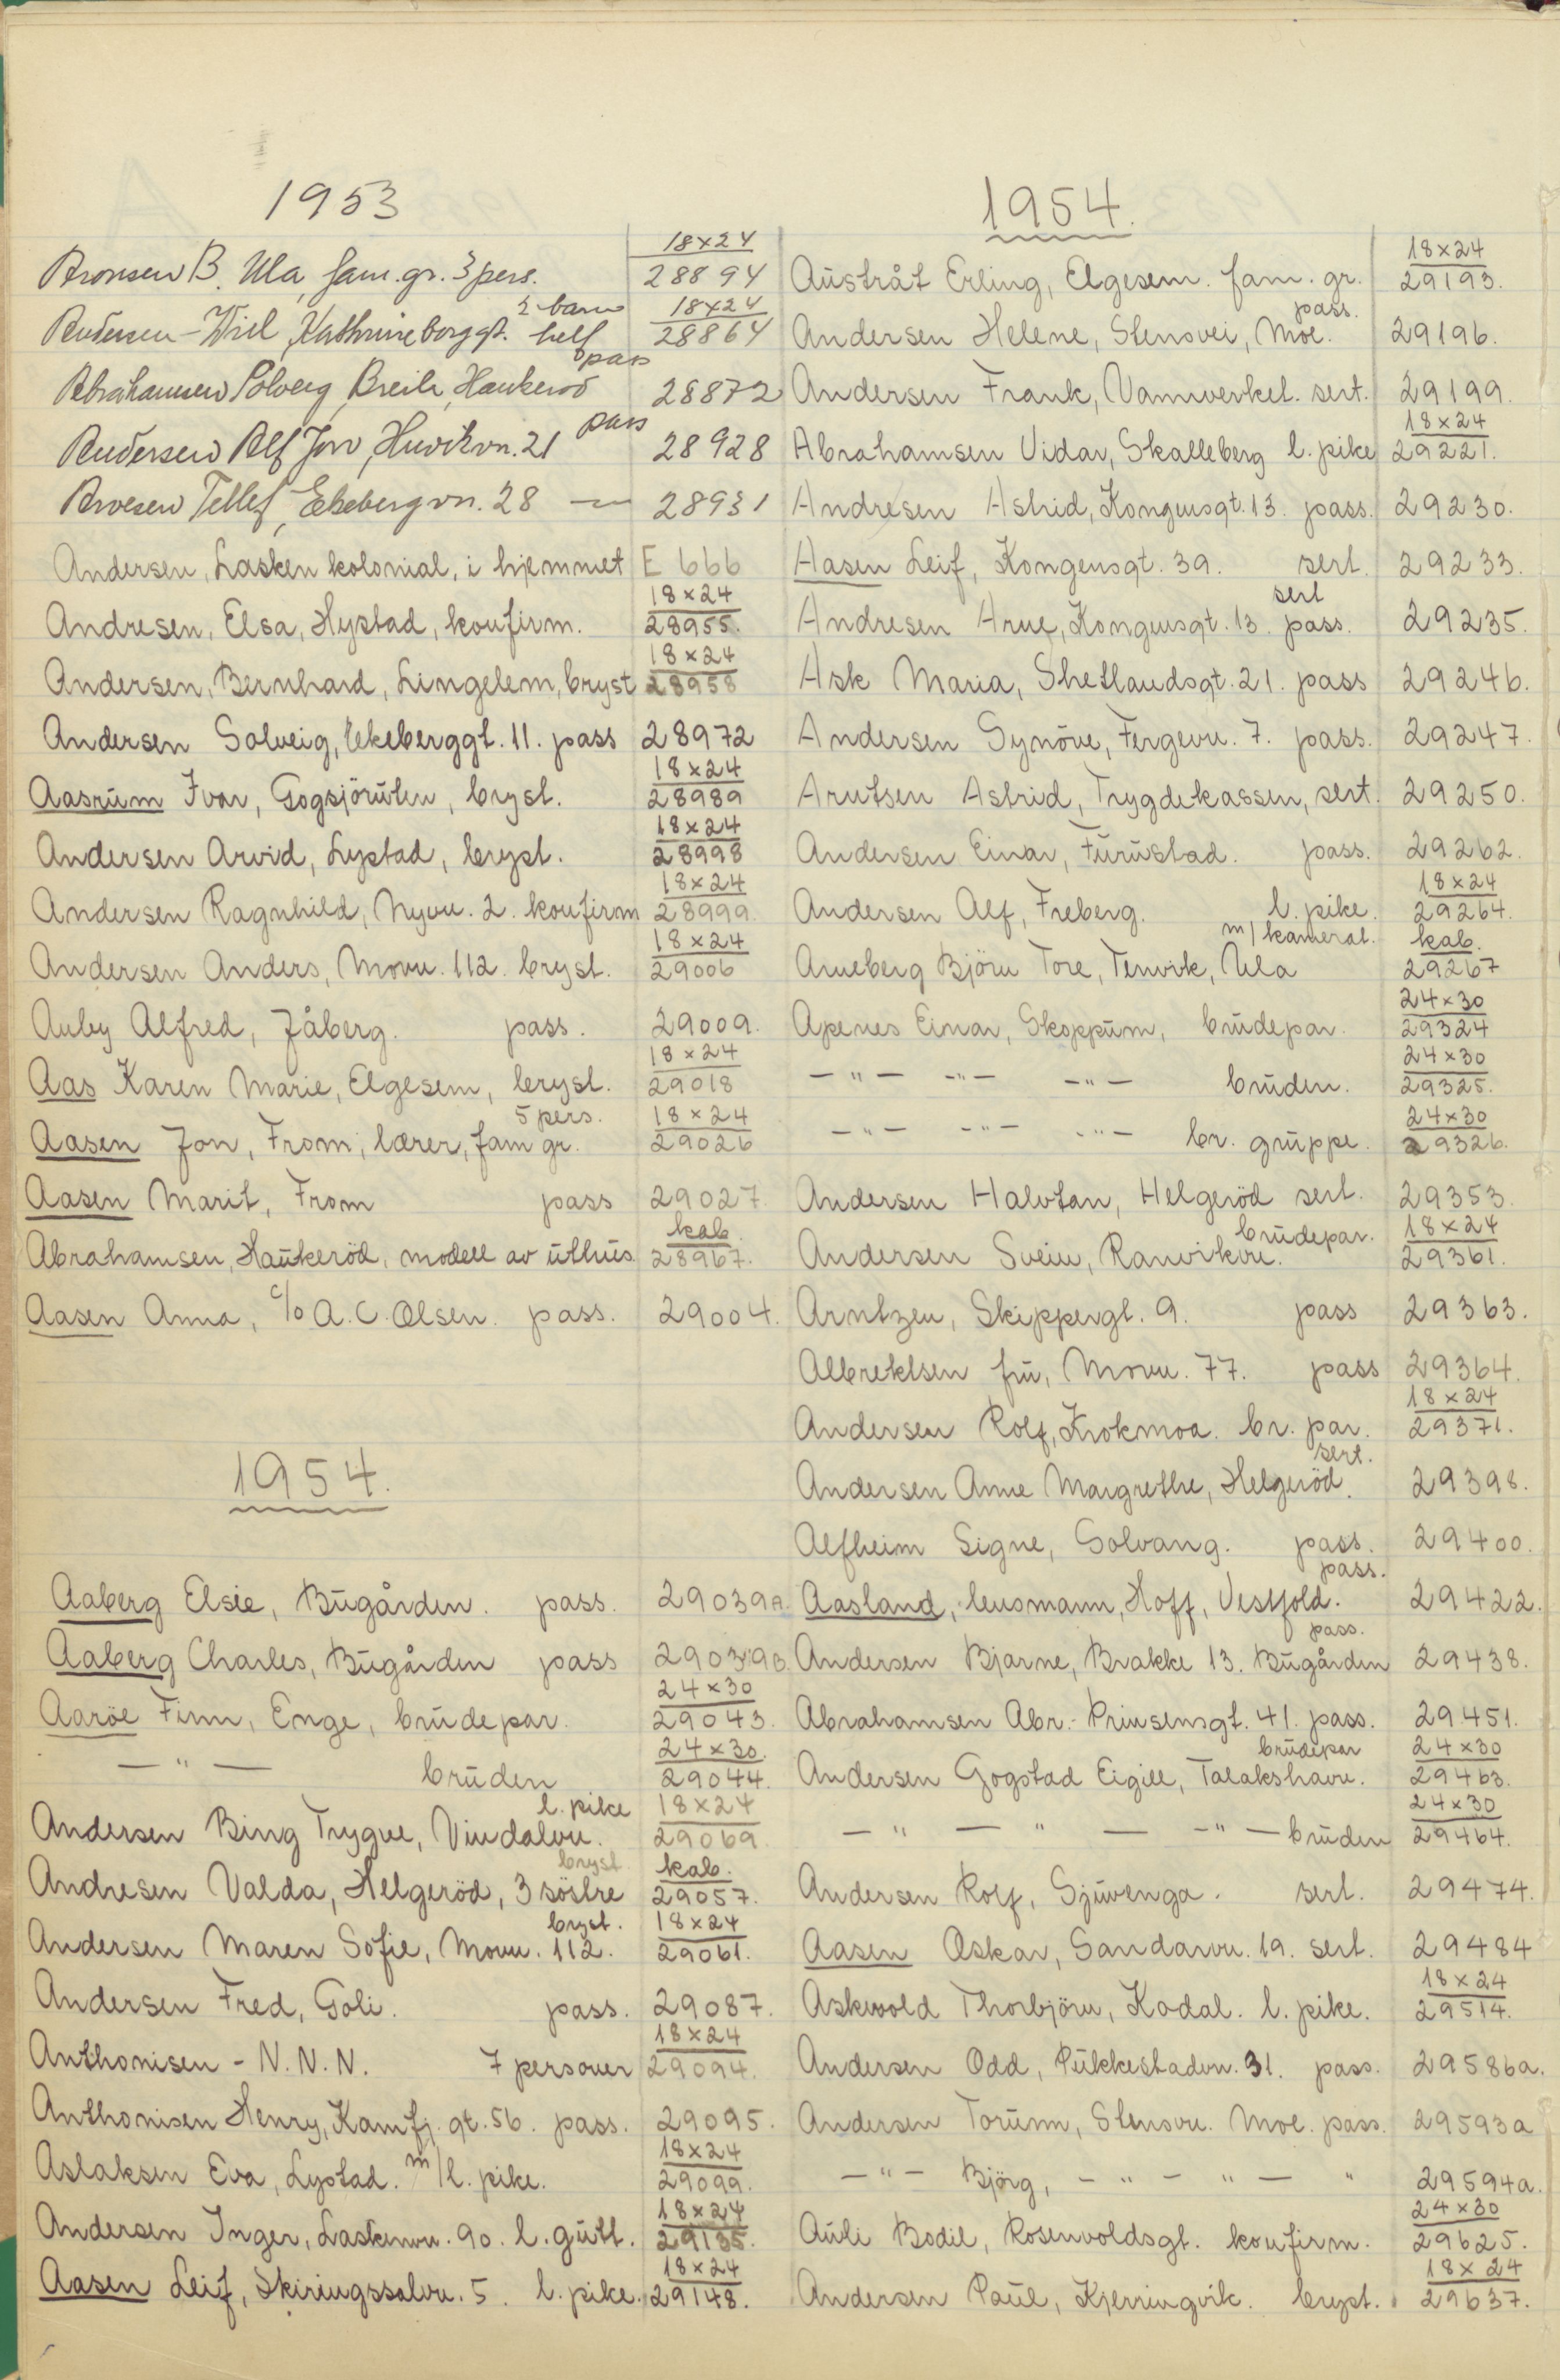 1953
Aronsen B. Ula, fam.gr. 3 pers. 18x24 28894
Andersen-Wiel, Kathrineborggt. 2 barn helf 18x24 28864
Abrahamsen Solveig, Breili, Haukerød pass 28872
Andersen Alf Jon, Huvikvn. 21 pass 28928
Arvesen Tellef, Ekebergvn. 28 — 28931
Andersen, Lasken kolonial, i hjemmet E 666
Andresen, Elsa, Hystad, konfirm. 18x24 28955.
Andersen, Bernhard, Lingelem, bryst 18x24 28958
Andersen Solveig, Ekeberggt. 11. pass 28972
Aasrum Ivar, Gogsjöruten, bryst. 18x24 28989
Andersen Arvid, Lystad, bryst. 18x24 28998
Andersen Ragnhild, Nyvn. 2. konfirm 18x24 28999.
Andersen Anders, Movn. 112. bryst. 18x24 29006
Auby Alfred, Jåberg. pass. 29009.
Aas Karen Marie, Elgesem, bryst. 18x24 29018
Aasen Jon, From, lærer, fam gr. 5 pers. 18x24 29026
Aasen Marit, From pass 29027.
Abrahamsen, Haukeröd, modell av uthus kab. 28967.
Aasen Anna, c/o A.C. Olsen. pass. 29004.
1954.
Aaberg Elsie, Bugården. pass. 29039A.
Aaberg Charles, Bugården pass 29039B.
Aaröe Finn, Enge, brudepar. 24x30 29043.
— " — bruden 24x30. 29044.
Andersen Bing Trygve, Vindalvn. l. pike 18x24 29069.
Andresen Valda, Helgeröd, 3 söstre bryst kab. 29057.
Andersen Maren Sofie, Movn. 112. bryst. 18x24 29061.
Andersen Fred, Goli. pass. 29087.
Anthonisen - N.N.N. 7 personer 18x24 29094.
Anthonisen Henry, Kamfj. gt. 56. pass. 29095.
Aslaksen Eva, Lystad. m/l. pike. 18x24 29099.
Andersen Inger, Laskenvn. 90. l. gutt. 18x24 29135.
Aasen Leif, Skiringssalvn. 5. l. pike. 18x24 29148.
1954.
Austråt Erling, Elgesem. fam. gr. 18x24 29193.
Andersen Helene, Stensvei, Moe. pass. 29196.
Andersen Frank, Vannverket. sert. 29199.
Abrahamsen Vidar, Skalleberg l. pike 18x24 29221.
Andresen Astrid, Kongensgt. 13. pass. 29230.
Aasen Leif, Kongensgt. 39. sert. 29233.
Andresen Arne, Kongensgt. 13. sert pass. 29235.
Ask Maria, Shetlandsgt. 21. pass 29246.
Andersen Synöve, Fergevn. 7. pass. 29247.
Arntsen Astrid, Trygdekassen, sert. 29250.
Andersen Einar, Furustad. pass. 29262.
Andersen Alf, Freberg. l. pike. 18x24 29264.
Arneberg Björn Tore, Tenvik, Ula m/kamerat. kab. 29267
Apenes Einar, Skoppum, brudepar. 24x30 29324
— " — — " — — " — bruden. 24x30 29325.
— " — — " — — " — br. gruppe. 24x30 29326.
Andersen Halvtan, Helgeröd sert. 29353.
Andersen Svein, Ranvikvn. brudepar. 18x24 29361.
Arntzen, Skippergt. 9. pass 29363.
Albrektsen fru, Movn. 77. pass 29364.
Andersen Rolf, Krokmoa. br. par. 18x24 29371.
Andersen Anne Margrethe, Helgeröd. sert. 29398.
Alfheim Signe, Solvang. pass. 29400.
Aasland, lensmann, Hoff, Vestfold. pass. 29422.
Andersen Bjarne, Brakke 13. Bugården pass. 29438.
Abrahamsen Abr. Prinsensgt. 41. pass. 29451.
Andersen Gogstad Eigill, Talakshavn. brudepar 24x30 29463.
— " — " — — " — bruden 24x30 29464.
Andersen Rolf, Sjuvenga. sert. 29474.
Aasen Oskar, Sandarvn. 19. sert. 29484
Askwold Thorbjörn, Kodal. l. pike. 18x24 29514.
Andersen Odd, Pukkestadvn. 31. pass. 29586a.
Andersen Torunn, Stensvn. Moe. pass. 29593a
— " — Björg, — " — " — " 29594a.
Auli Bodil, Rosenvoldsgt. konfirm. 24x30 29625.
Andersen Paul, Kjerringvik. bryst. 18x24 29637.